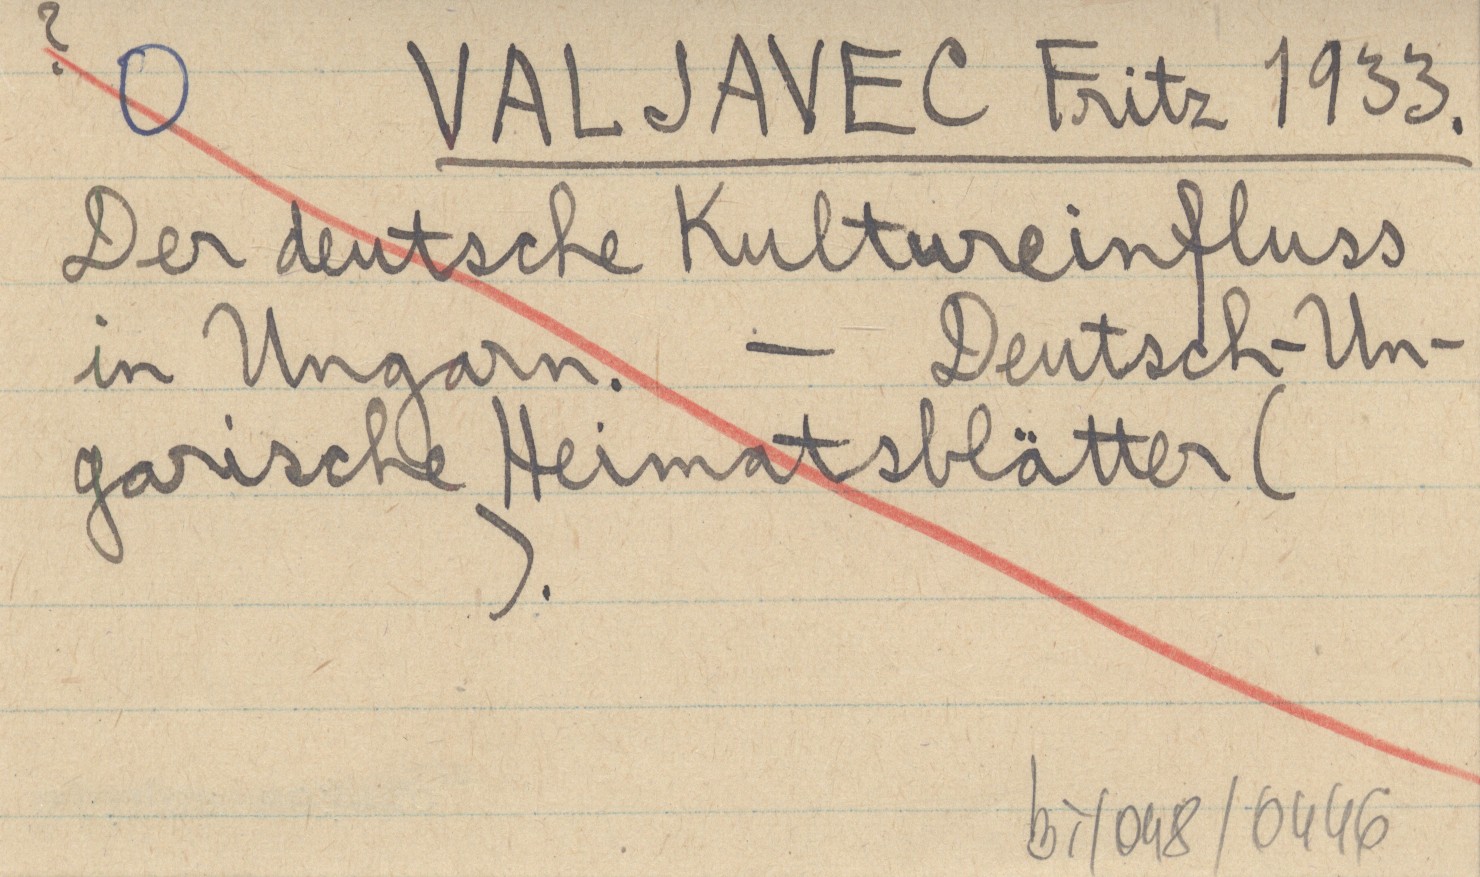 ?
O VALJAVEC Fritz 1933.
Der deutsche Kultureinfluss
in Ungarn. — Deutsch-Un-
garische Heimatsblätter (
).
bi/048/0446